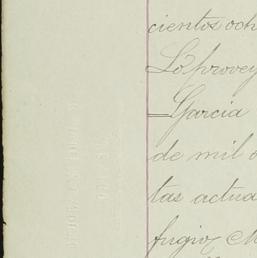 cientos och
Lo provey
Garcia
de mil o
tas actua
fugio, M